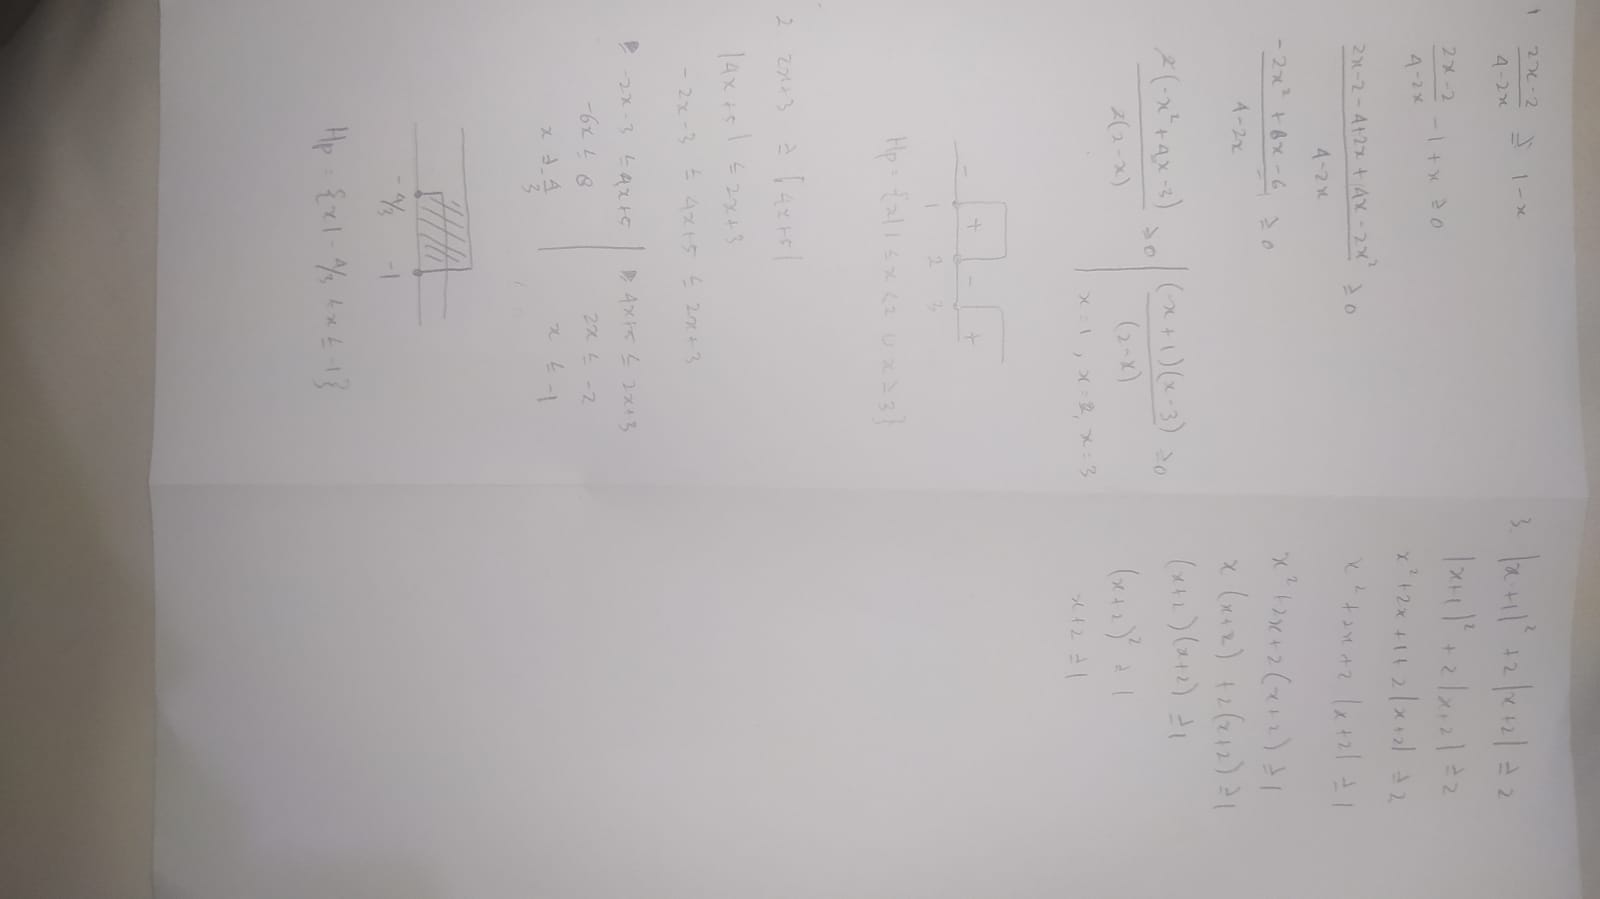 1 (2x-2)/(4-2x) ≥ 1-x
(2x-2)/(4-2x) - 1 + x ≥ 0
(2x-2-4+2x+4x-2x²)/(4-2x) ≥ 0
(-2x²+8x-6)/(4-2x) ≥ 0
2(-x²+4x-3)/2(2-x) ≥ 0 | (-x+1)(x-3)/(2-x) ≥ 0
x=1, x=2, x=3
- + - +
1 2 3
Hp = {x | 1 ≤ x < 2 ∪ x ≥ 3}
2 2x+3 ≥ |4x+5|
|4x+5| ≤ 2x+3
-2x-3 ≤ 4x+5 ≤ 2x+3
-2x-3 ≤ 4x+5 | 4x+5 ≤ 2x+3
-6x ≤ 8 | 2x ≤ -2
x ≥ -4/3 | x ≤ -1
-4/3 -1
Hp = {x | -4/3 ≤ x ≤ -1}
3. |x+1|² + 2|x+2| ≥ 2
|x+1|² + 2|x+2| ≥ 2
x²+2x+1+2|x+2| ≥ 2
x²+2x+2|x+2| ≥ 1
x²+2x+2(x+2) ≥ 1
x(x+2)+2(x+2) ≥ 1
(x+2)(x+2) ≥ 1
(x+2)² ≥ 1
x+2 ≥ 1